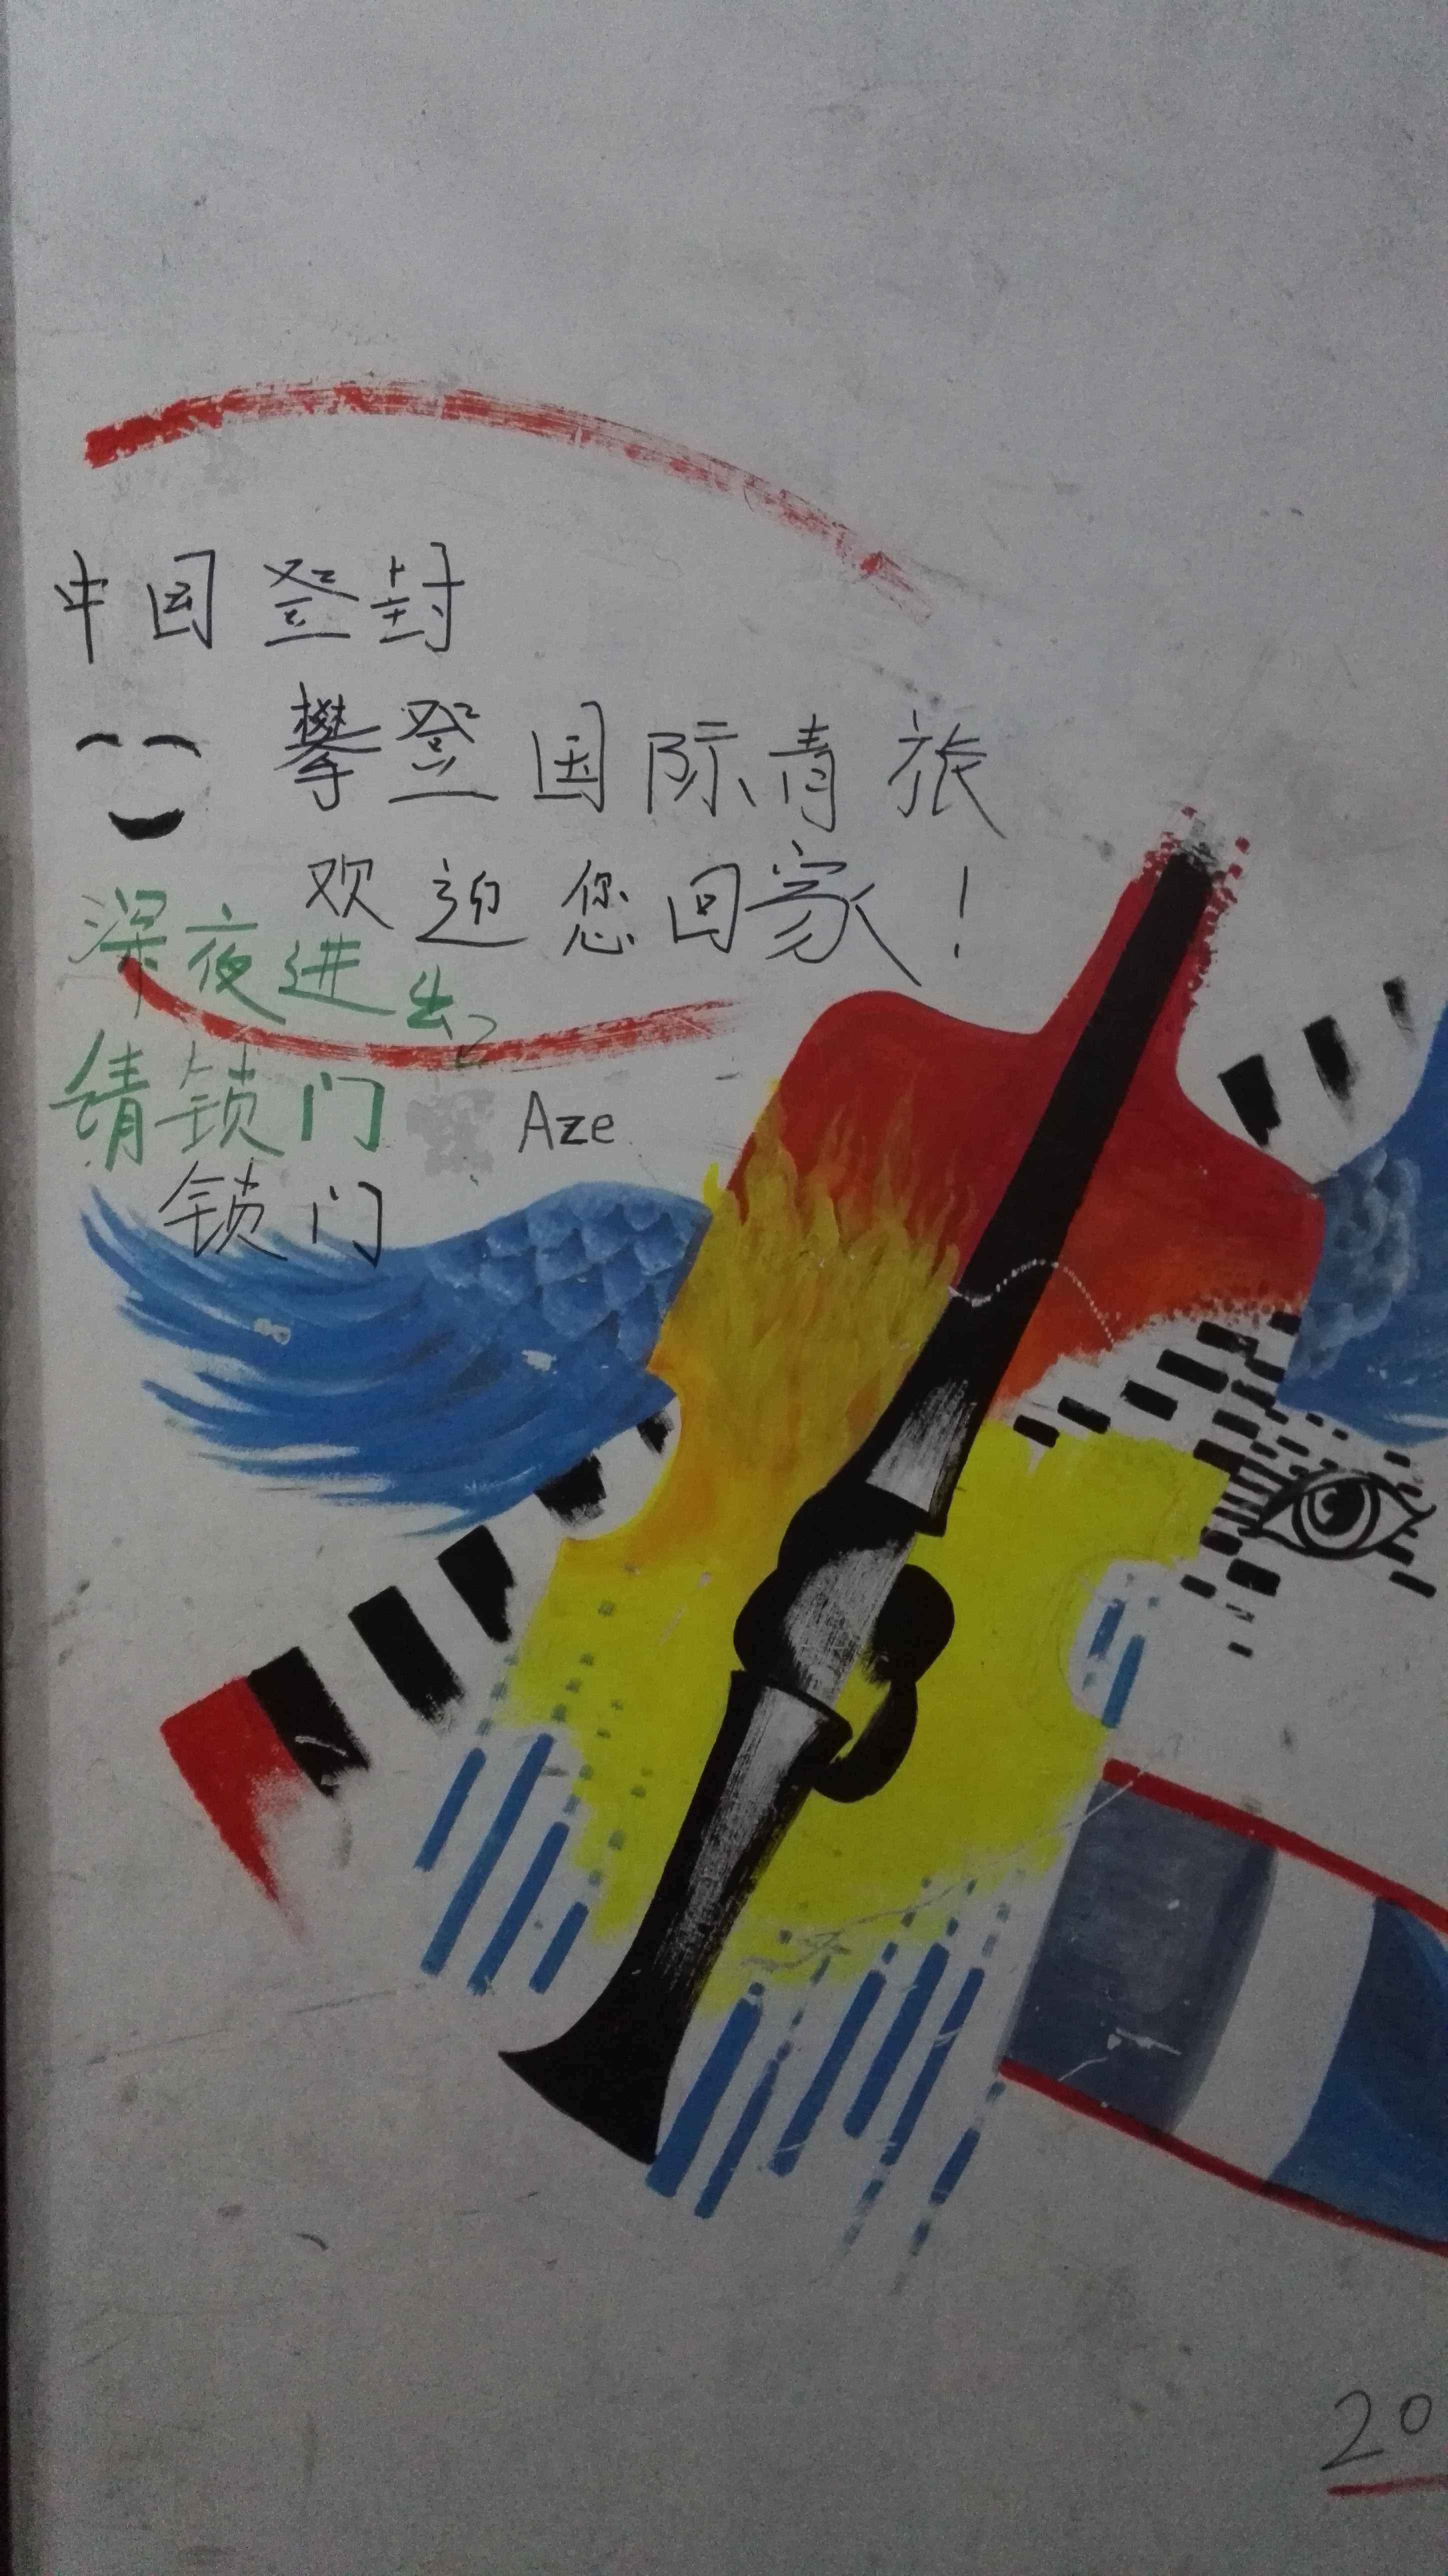 中国登封
攀登国际青旅
欢迎您回家！
深夜进出
请锁门
Aze
锁门
20